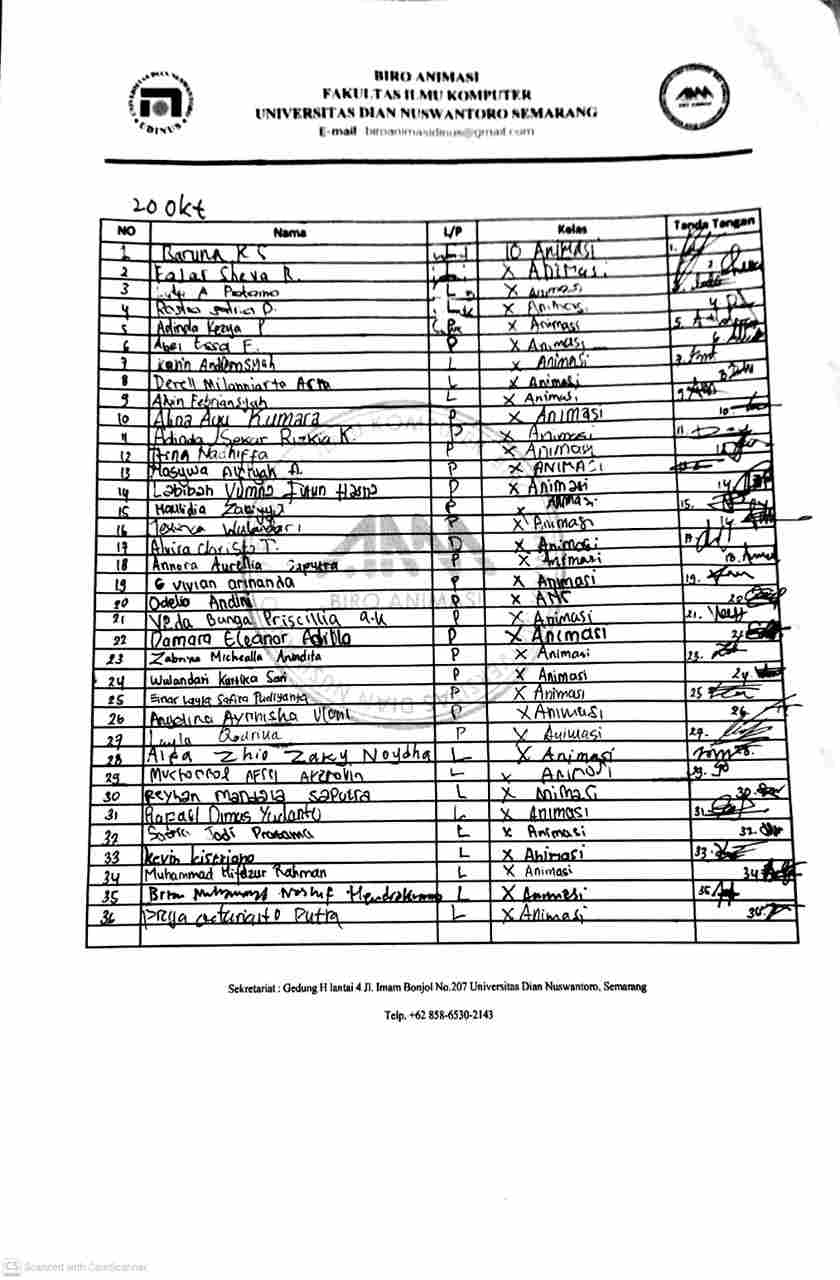 BIRO ANIMASI
FAKULTAS ILMU KOMPUTER
UNIVERSITAS DIAN NUSWANTORO SEMARANG
E-mail biroanimasidinus@gmail.com
UDINUS
20 Okt
NO Nama L/P Kelas Tanda Tangan
1 Baruna K S 10 ANIMASI 1.
2 Fajar Sheva R. X ANIMASI 2
3 A Pratama L X Animasi
4 P. L X Animasi 4
5 Adinda Kezya P X Animasi 5.
6 Abel Essa F. P X Animasi 6
7 L X Animasi 7.
8 Derell Milanniarta L X Animasi 8
9 Alvin Febriansyah L X Animasi 9
10 Alina Ayu Kumara P X Animasi 10
11 Adinda Sekar Rizkia K. P X Animasi 11.
12 Nadhiffa P X Animasi
13 Hasywa A. P X ANIMASI
14 Labibah P X Animasi 14
15 Maulidia P X Animasi 15.
16 Wulandari P X Animasi
17 Alvira Christa T. P X Animasi 17
18 Annora Aurellia Saputra P X Animasi 18.
19 G Vivian arinanda P X Animasi 19.
20 Odelio Andini P X 20
21 Veda Bunga Priscillia a.k P X Animasi 21.
22 Damara Eleanor P X Animasi
23 Zabrina Michealla Anindita P X Animasi 23.
24 Wulandari Kartika Sari P X Animasi 24
25 Einar Layla Safira Pudiyanta P X Animasi 25
26 Ayunisha P X Animasi 26
27 Layla P X Animasi 27.
28 Alfa Zhio Zaky Noydha L X Animasi 28.
29 L X Animasi 29.
30 Reyhan Mandala Saputra L X Animasi 30.
31 Rafael Dimas Yudanto L X Animasi 31.
32 Satria Jodi Pratama L X Animasi 32.
33 Kevin L X Animasi 33.
34 Muhammad Hifdzur Rahman L X Animasi 34
35 Muhammad L X Animasi 35
36 Putra L X Animasi 36.
BIRO ANIMASI
Sekretariat : Gedung H lantai 4 Jl. Imam Bonjol No.207 Universitas Dian Nuswantoro, Semarang
Telp. +62 858-6530-2143
CS Scanned with CamScanner